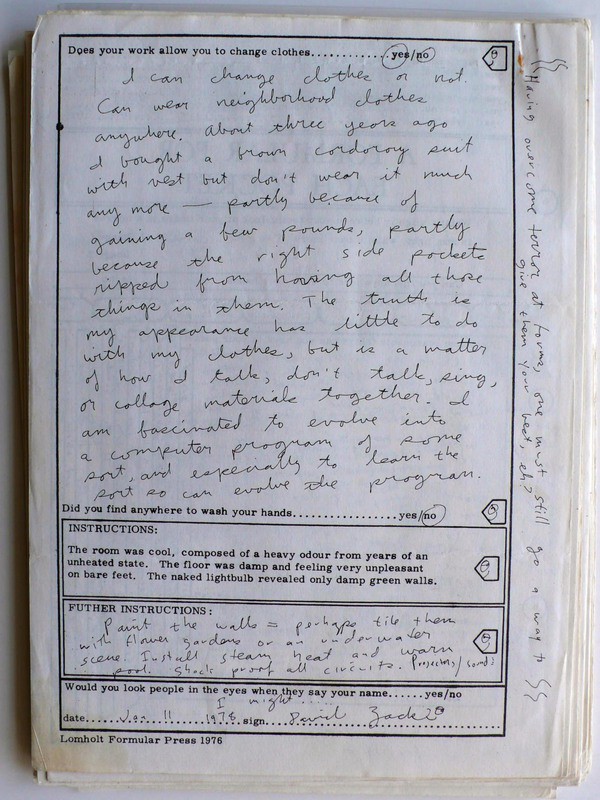 Does your work allow you to change clothes............yes/no
I can change clothes or not.
Can wear neighborhood clothes
anywhere. About three years ago
I bought a brown cordorory suit
with vest but don't wear it much
any more — partly because of
gaining a few pounds, partly
because the right side pockets
ripped from having all those
things in them. The truth is
my appearance has little to do
with my clothes, but is a matter
of how I talk, don't talk, sing,
or collage materials together. I
am fascinated to evolve into
a computer program of some
sort, and especially to learn the
sort so can evolve the program.
Did you find anywhere to wash your hands.................yes/no
INSTRUCTIONS:
The room was cool, composed of a heavy odour from years of an
unheated state. The floor was damp and feeling very unpleasant
on bare feet. The naked lightbulb revealed only damp green walls.
FUTHER INSTRUCTIONS:
Paint the walls = perhaps tile them
with flower gardens or an underwater
scene. Install steam heat and warm
pool. Shock proof all circuits. Projectors/sounds
Would you look people in the eyes when they say your name......yes/no
I might....
date......Jan 11 1978 sign....David Zack
Lomholt Formular Press 1976
Having overcome terror at forms, one must still go a way to
give them your best, eh?